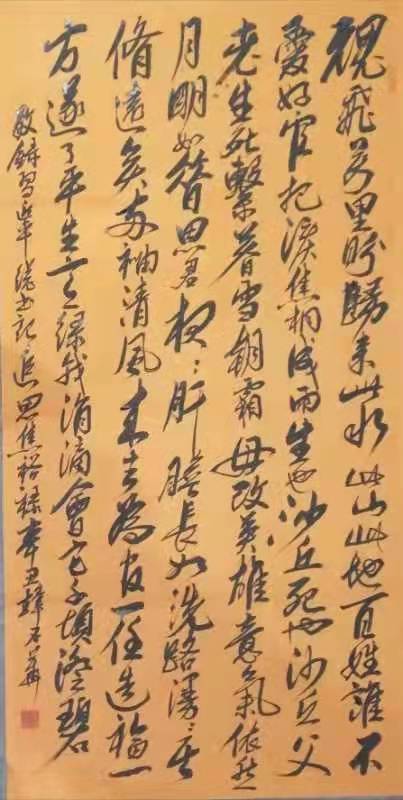 魂飛萬里盼歸来此水此山此地百姓誰不
愛好官把淚焦桐成雨生也沙丘死也沙丘父
老生死繫暮雪朝霜毋改英雄意氣依然
月明如昔思君夜〻肝膽長如洗路漫〻其
脩遠矣两袖清風来去為官一任造福一
方遂了平生意緑我涓滴會它千頃澄碧
敬錄習近平總書記追思焦裕祿辛丑